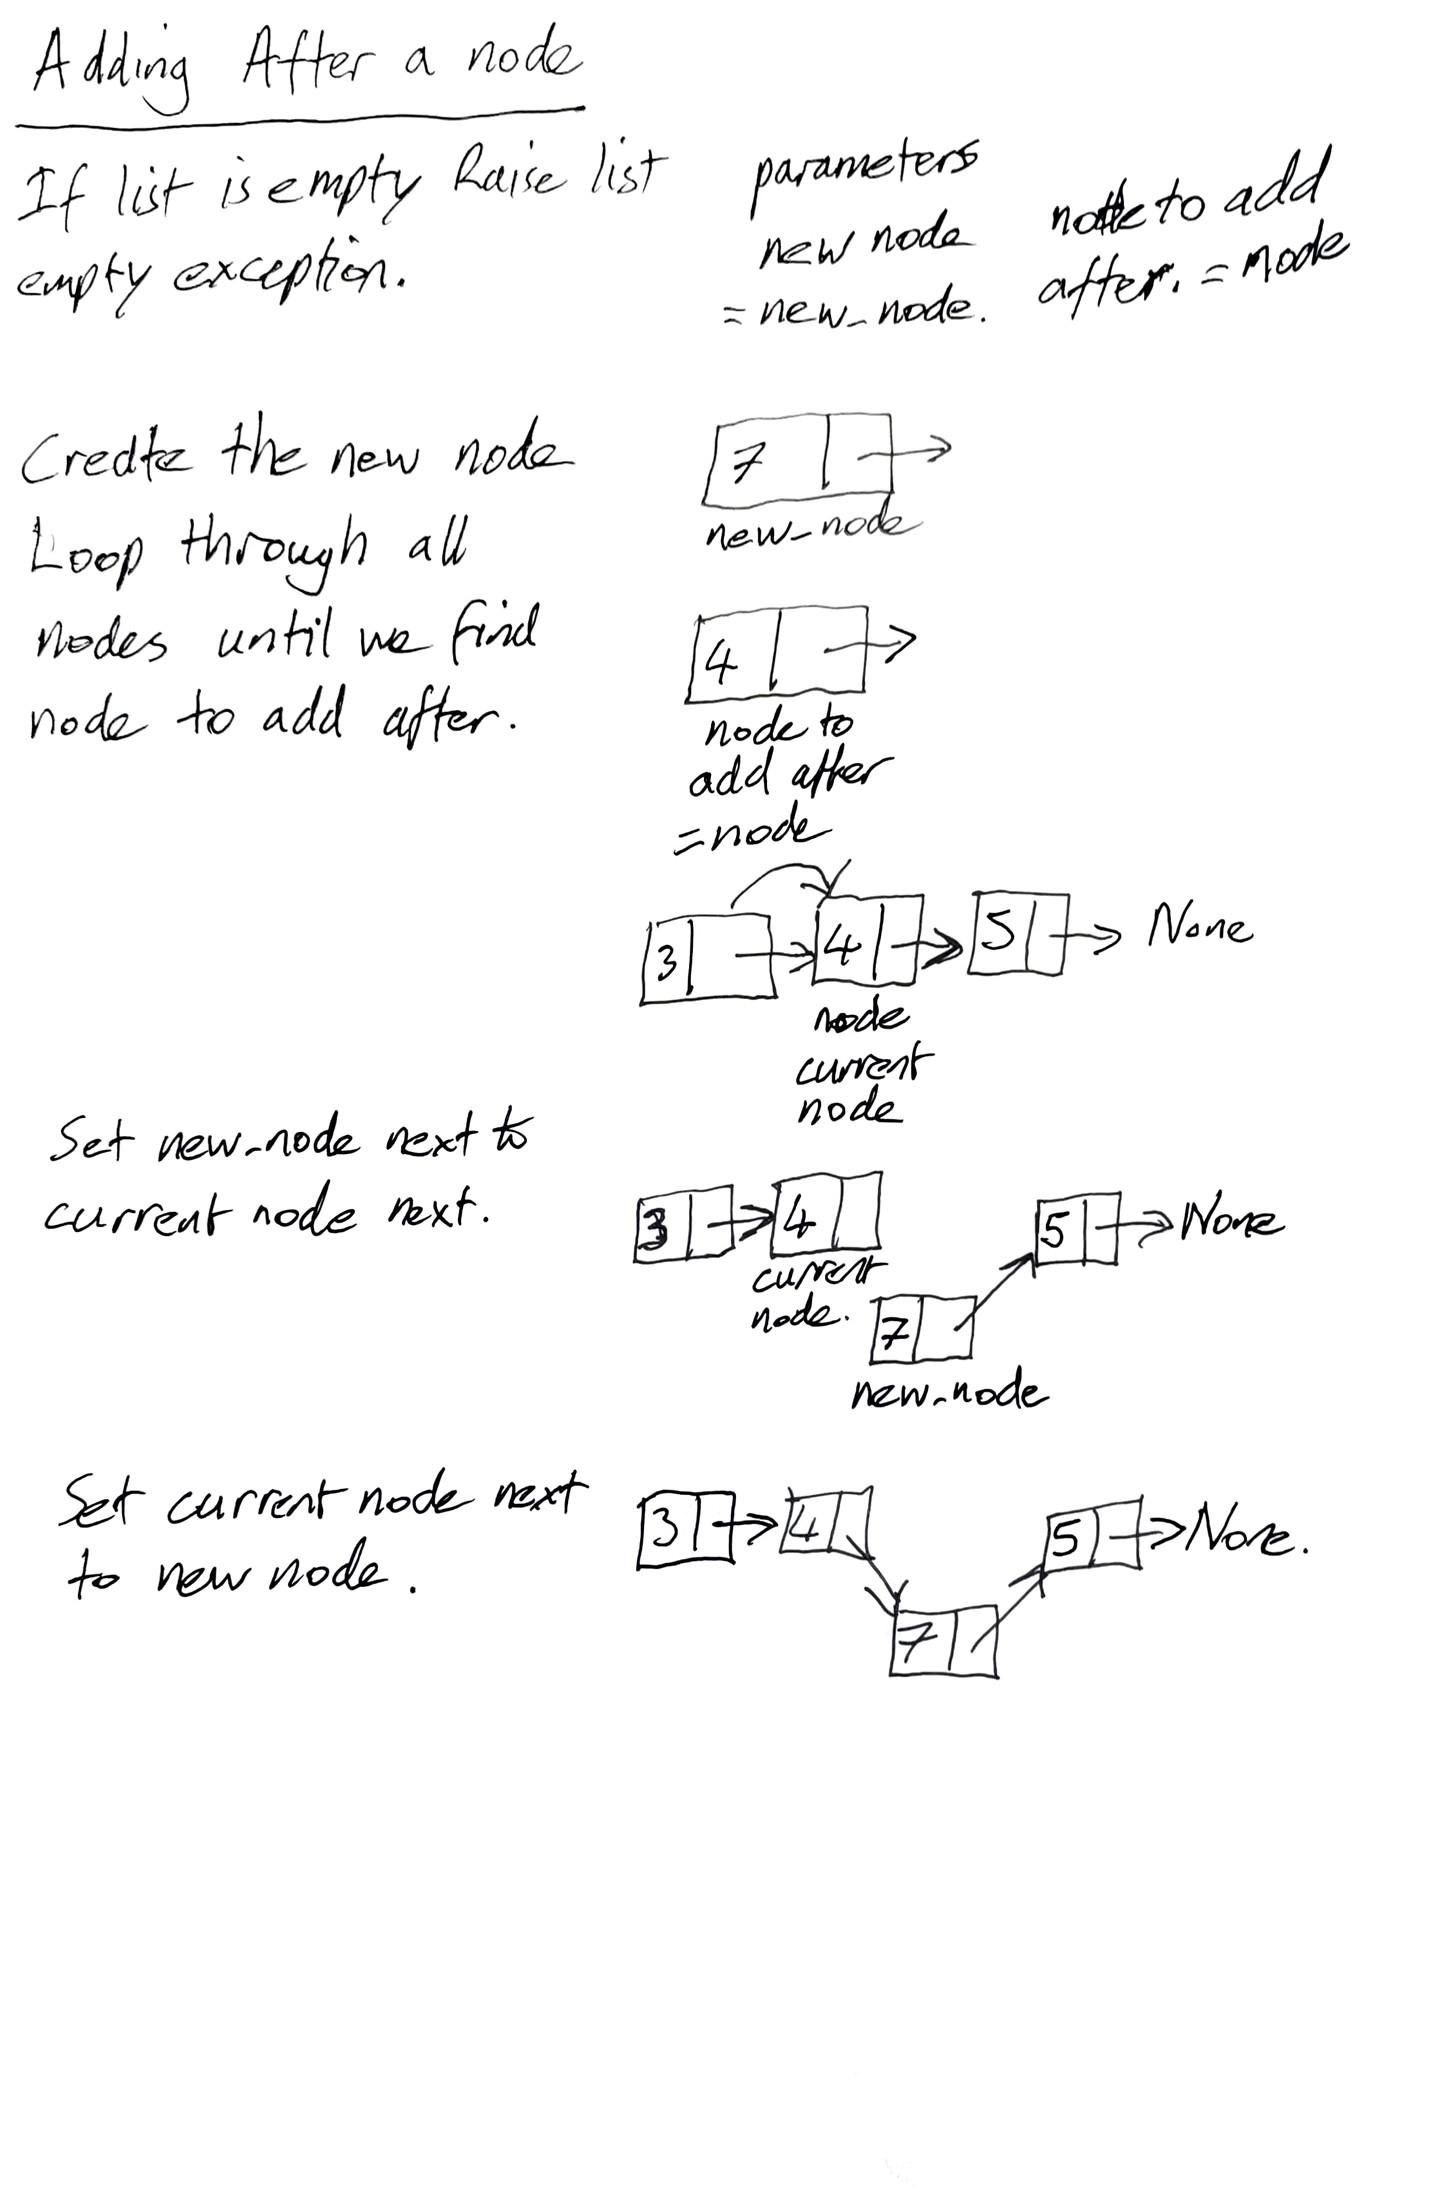 Adding After a node
If list is empty Raise list
empty exception.
parameters
new node
= new_node.
node to add
after. = node
Create the new node
Loop through all
nodes until we find
node to add after.
7
new_node
4
node to
add after
= node
3 4 5 None
node
current
node
Set new_node next to
current node next.
3 4 5 None
current
node.
7
new_node
Set current node next
to new node.
3 4 5 None.
7